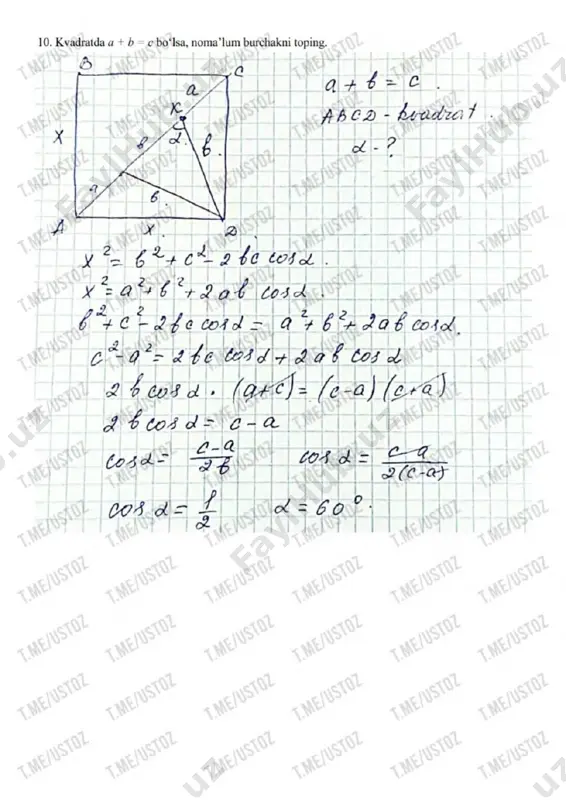 10. Kvadratda a + b = c bo‘lsa, noma’lum burchakni toping.
B
C
a
K
a + b = c .
ABCD - kvadrat .
α - ?
X
в
α.
в .
a
в .
A
X
D.
x² = в² + c² - 2вc cosα .
x² = a² + в² + 2aв cosα .
в² + c² - 2вc cosα = a² + в² + 2aв cosα.
c² - a² = 2вc cosα + 2aв cosα
2в cosα · (a+c) = (c-a)(c+a)
2в cosα = c - a
cosα = c-a / 2в cosα = c-a / 2(c-a)
cosα = 1/2 α = 60°.
T.ME/USTOZ
FaylHub.uz